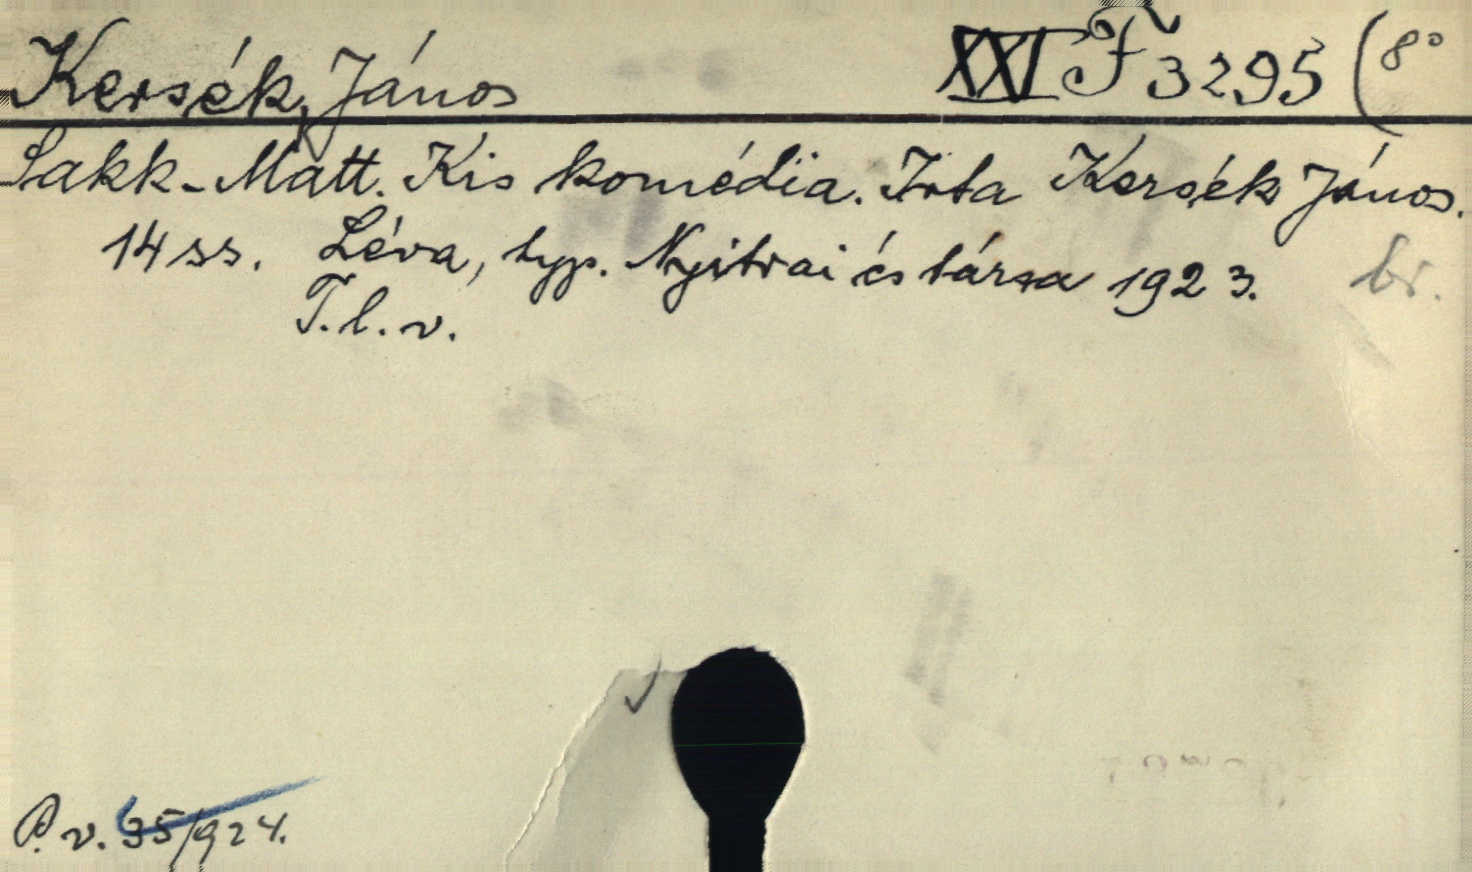 Kersék János
XXI F 3295 (8°
Sakk-Matt. Kis komédia. Irta Kersék János.
14 ss. Léva, typ. Nyitrai és társa 1923. br.
T. l. v.
P. v. 35/924.